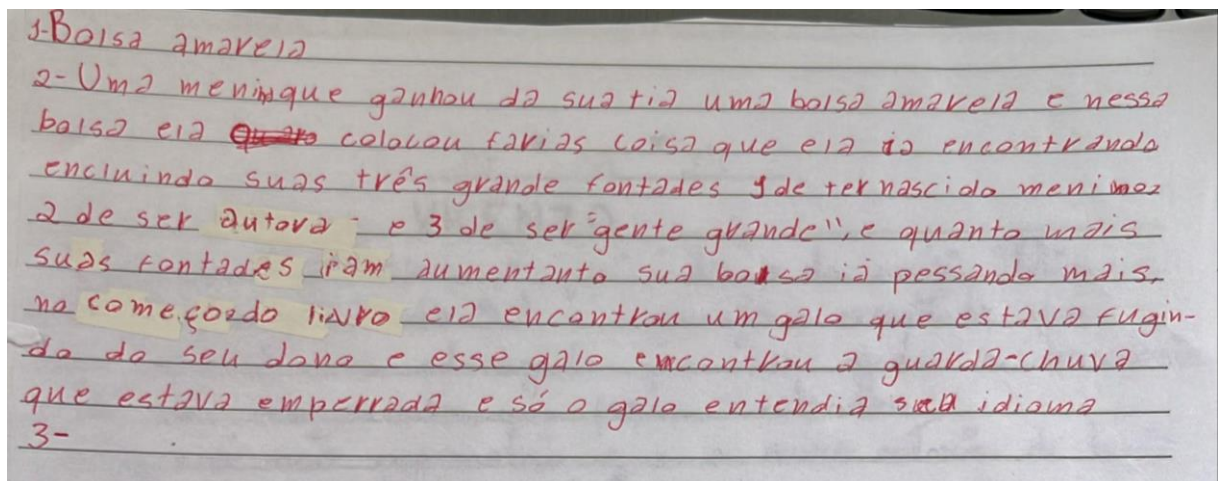 1-Bolsa amarela
2-Uma meninque ganhou da sua tia uma bolsa amarela e nessa
bolsa ela colocou farias coisa que ela ia encontrando
encluindo suas três grande fontades 1 de ter nascido menino
2 de ser autora e 3 de ser "gente grande", e quanto mais
suas fontades iram aumentanto sua bolsa ia pessando mais,
no começo do livro ela encontrou um galo que estava fugin-
do do seu dono e esse galo encontrou a guarda-chuva
que estava emperrada e só o galo entendia seu idioma
3-